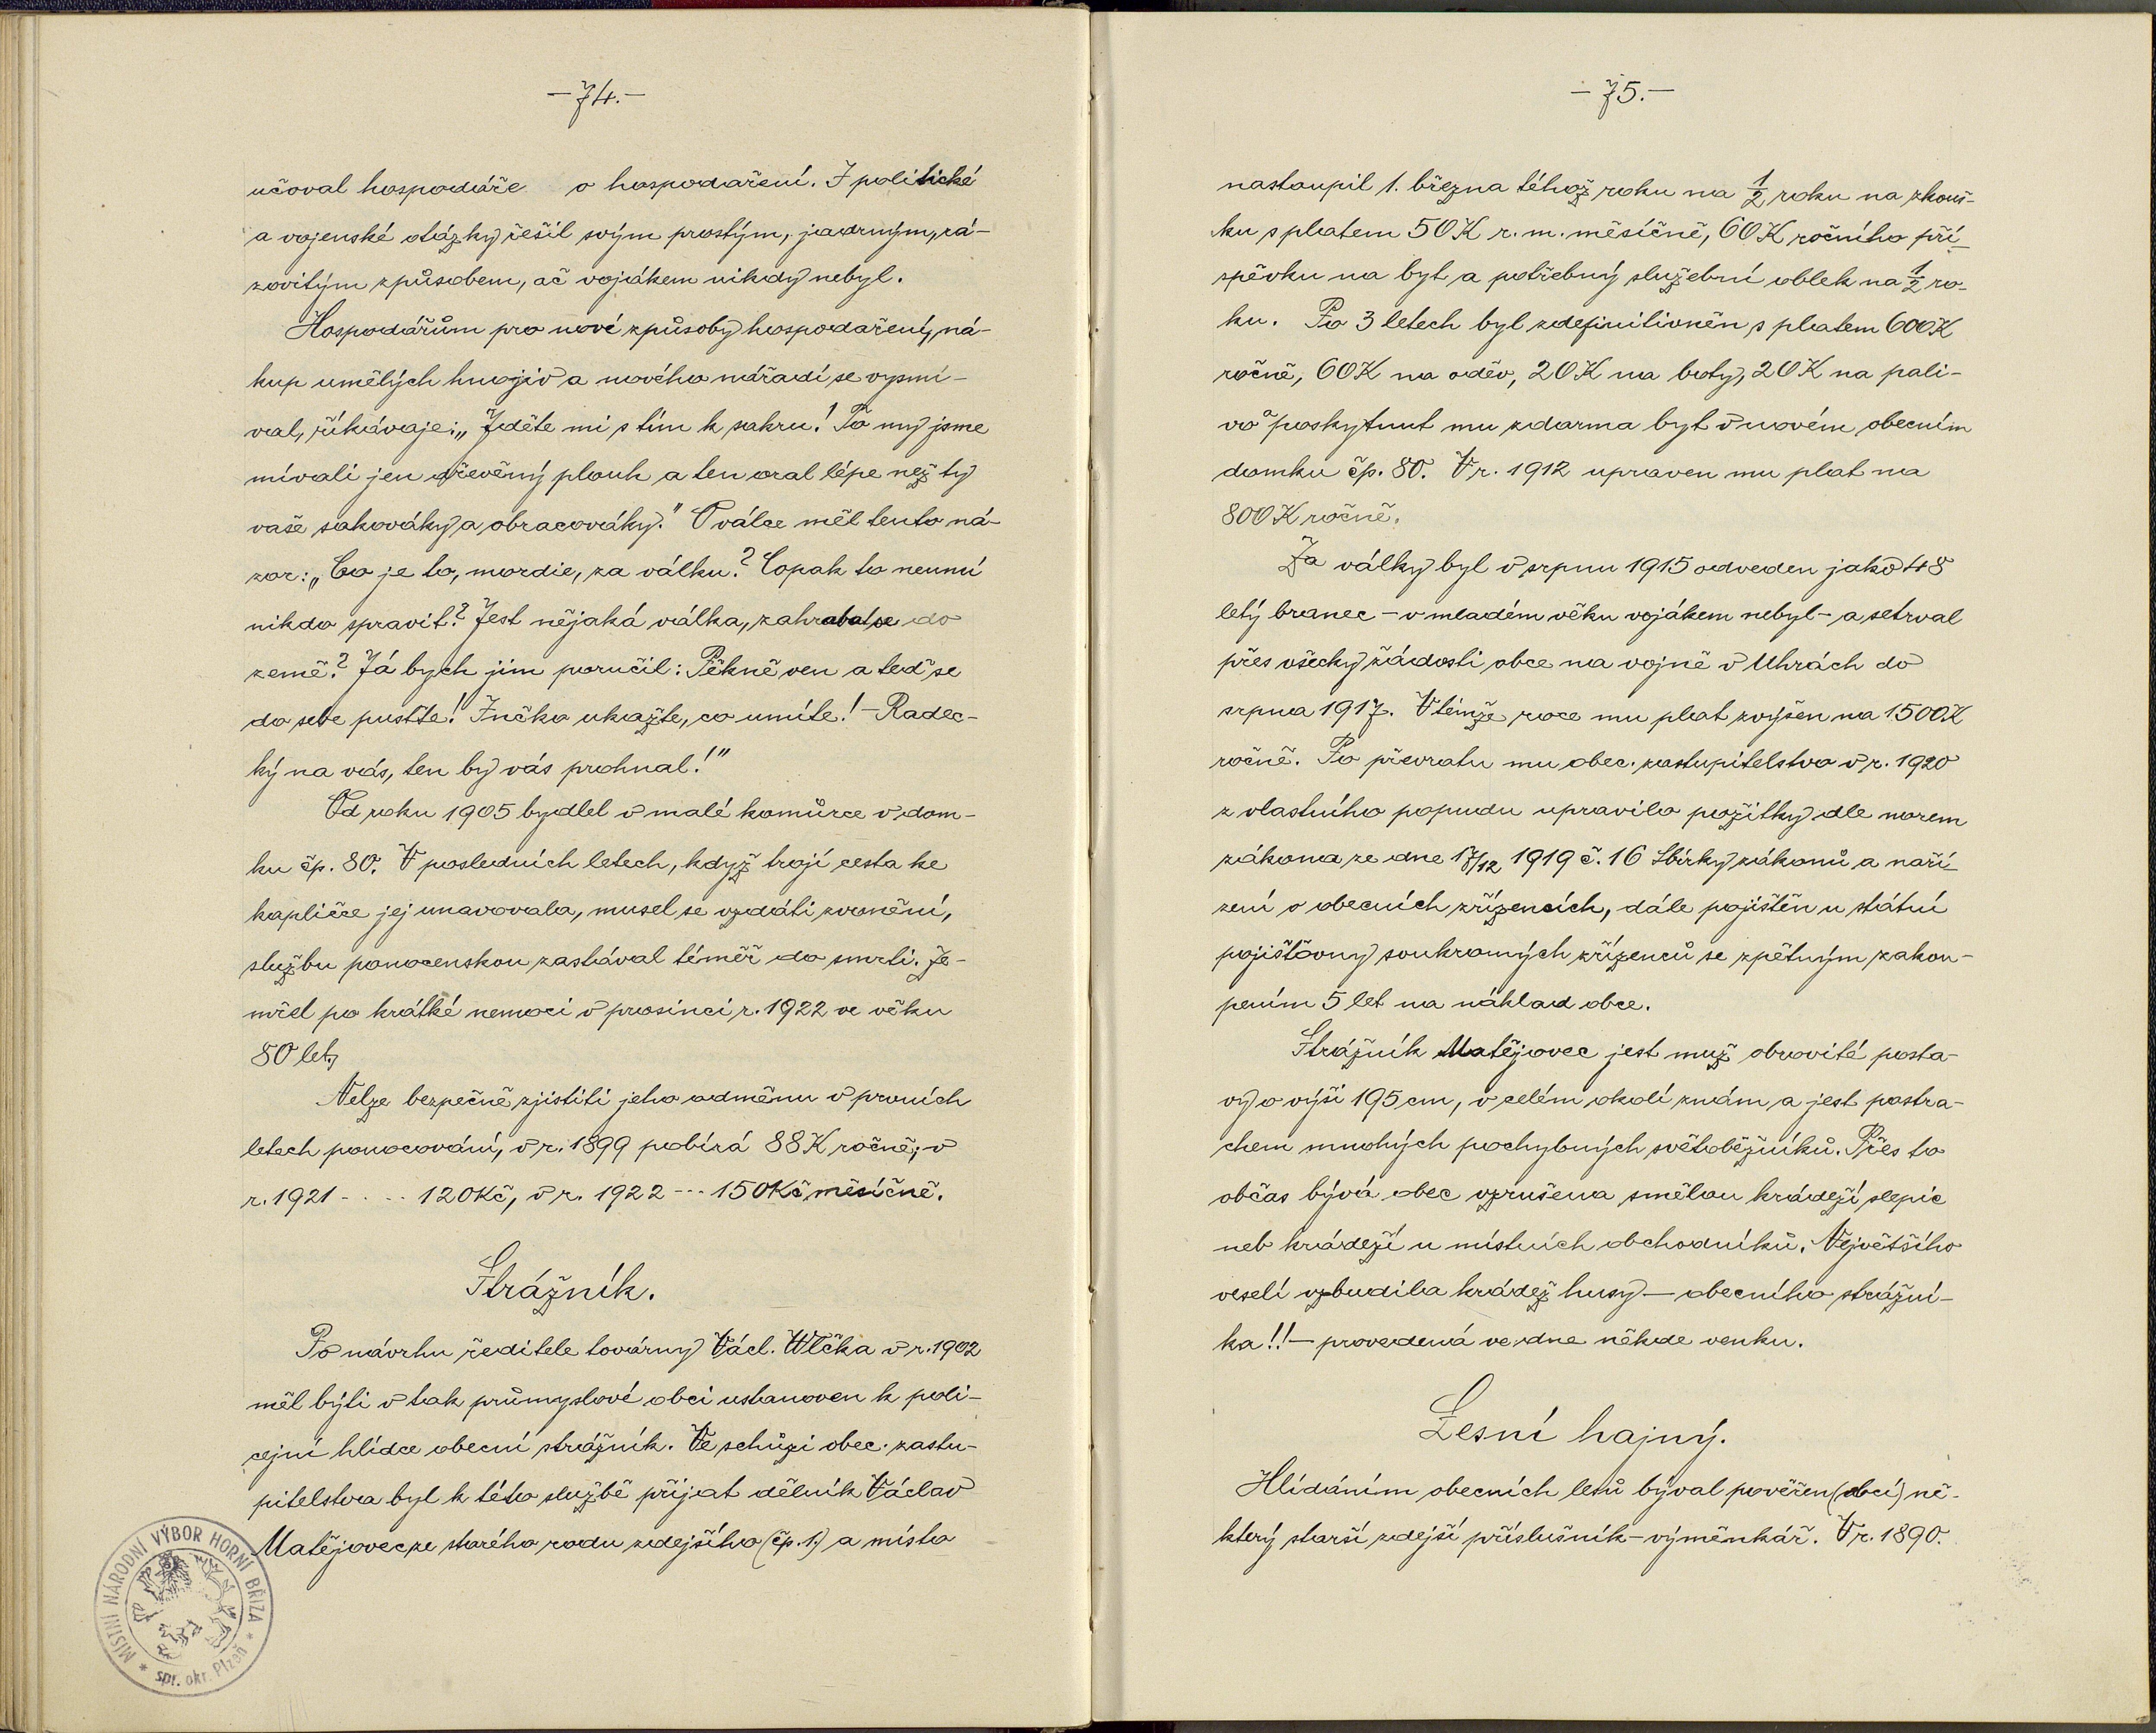 —74.—
učoval hospodáře o hospodaření. I politické
a vojenské otázky řešil svým prostým, jadrným, rá-
zovitým způsobem, ač vojákem nikdy nebyl.
Hospodářům pro nové způsoby hospodaření, ná-
kup umělých hnojiv a nového nářadí se vysmí-
val, říkávaje: „Jděte mi s tím k sakru! To my jsme
mívali jen dřevěný plouh a ten oral lépe než ty
vaše sakováky a obracováky." O válce měl tento ná-
zor: „Co je to, mordie, za válku? Copak to neumí
nikdo spravit? Jest nějaká válka, zahrabat se do
země? Já bych jim poručil: Pěkně ven a teď se
do sebe pusťte! Inčko ukažte, co umíte! — Radec-
ký na vás, ten by vás prohnal!"
Od roku 1905 bydlel v malé komůrce v dom-
ku čp. 80. V posledních letech, když trojí cesta ke
kapličce jej unavovala, musel se vzdáti zvonění,
službu ponocenskou zastával téměř do smrti. Ze-
mřel po krátké nemoci v prosinci r. 1922 ve věku
80 let.
Nelze bezpečně zjistiti jeho odměnu v prvních
letech ponocování, v r. 1899 pobírá 88 K ročně; v
r. 1921 - . . - 120 Kč, v r. 1922 --- 150 Kč měsíčně.
Strážník.
Po návrhu ředitele továrny Václ. Wlčka v r. 1902
měl býti v tak průmyslové obci ustanoven k poli-
cejní hlídce obecní strážník. Ve schůzi obec. zastu-
pitelstva byl k této službě přijat dělník Václav
Matějovec ze starého rodu zdejšího (čp. 1.) a místo
MÍSTNÍ NÁRODNÍ VÝBOR HORNÍ BŘÍZA * spr. okr. Plzeň *
—75.—
nastoupil 1. března téhož roku na 1/2 roku na zkouš-
ku s platem 50 K r. m. měsíčně, 60 K ročního pří-
spěvku na byt a potřebný služební oblek na 1/2 ro-
ku. Po 3 letech byl zdefinitivněn s platem 600 K
ročně, 60 K na oděv, 20 K na boty, 20 K na pali-
vo a poskytnut mu zdarma byt v novém obecním
domku čp. 80. V r. 1912 upraven mu plat na
800 K ročně.
Za války byl v srpnu 1915 odveden jako 48
letý branec — v mladém věku vojákem nebyl — a setrval
přes všecky žádosti obce na vojně v Uhrách do
srpna 1917. V témže roce mu plat zvýšen na 1500 K
ročně. Po převratu mu obec. zastupitelstvo v r. 1920
z vlastního popudu upravilo požitky dle norem
zákona ze dne 17/12 1919 č. 16 Sbírky zákonů a naří-
zení o obecních zřízencích, dále pojištěn u státní
pojišťovny soukromých zřízenců se zpětným zakou-
pením 5 let na náklad obce.
Strážník Matějovec jest muž obrovité posta-
vy o výši 195 cm, v celém okolí znám a jest postra-
chem mnohých pochybných světoběžníků. Přes to
občas bývá obec vzrušena smělou krádeží slepic
neb krádeží u místních obchodníků. Největšího
veselí vzbudila krádež husy — obecního strážní-
ka!! — provedená ve dne někde venku.
Lesní hajný.
Hlídáním obecních lesů býval pověřen (obcí) ně-
který starší zdejší příslušník — výměnkář. V r. 1890.